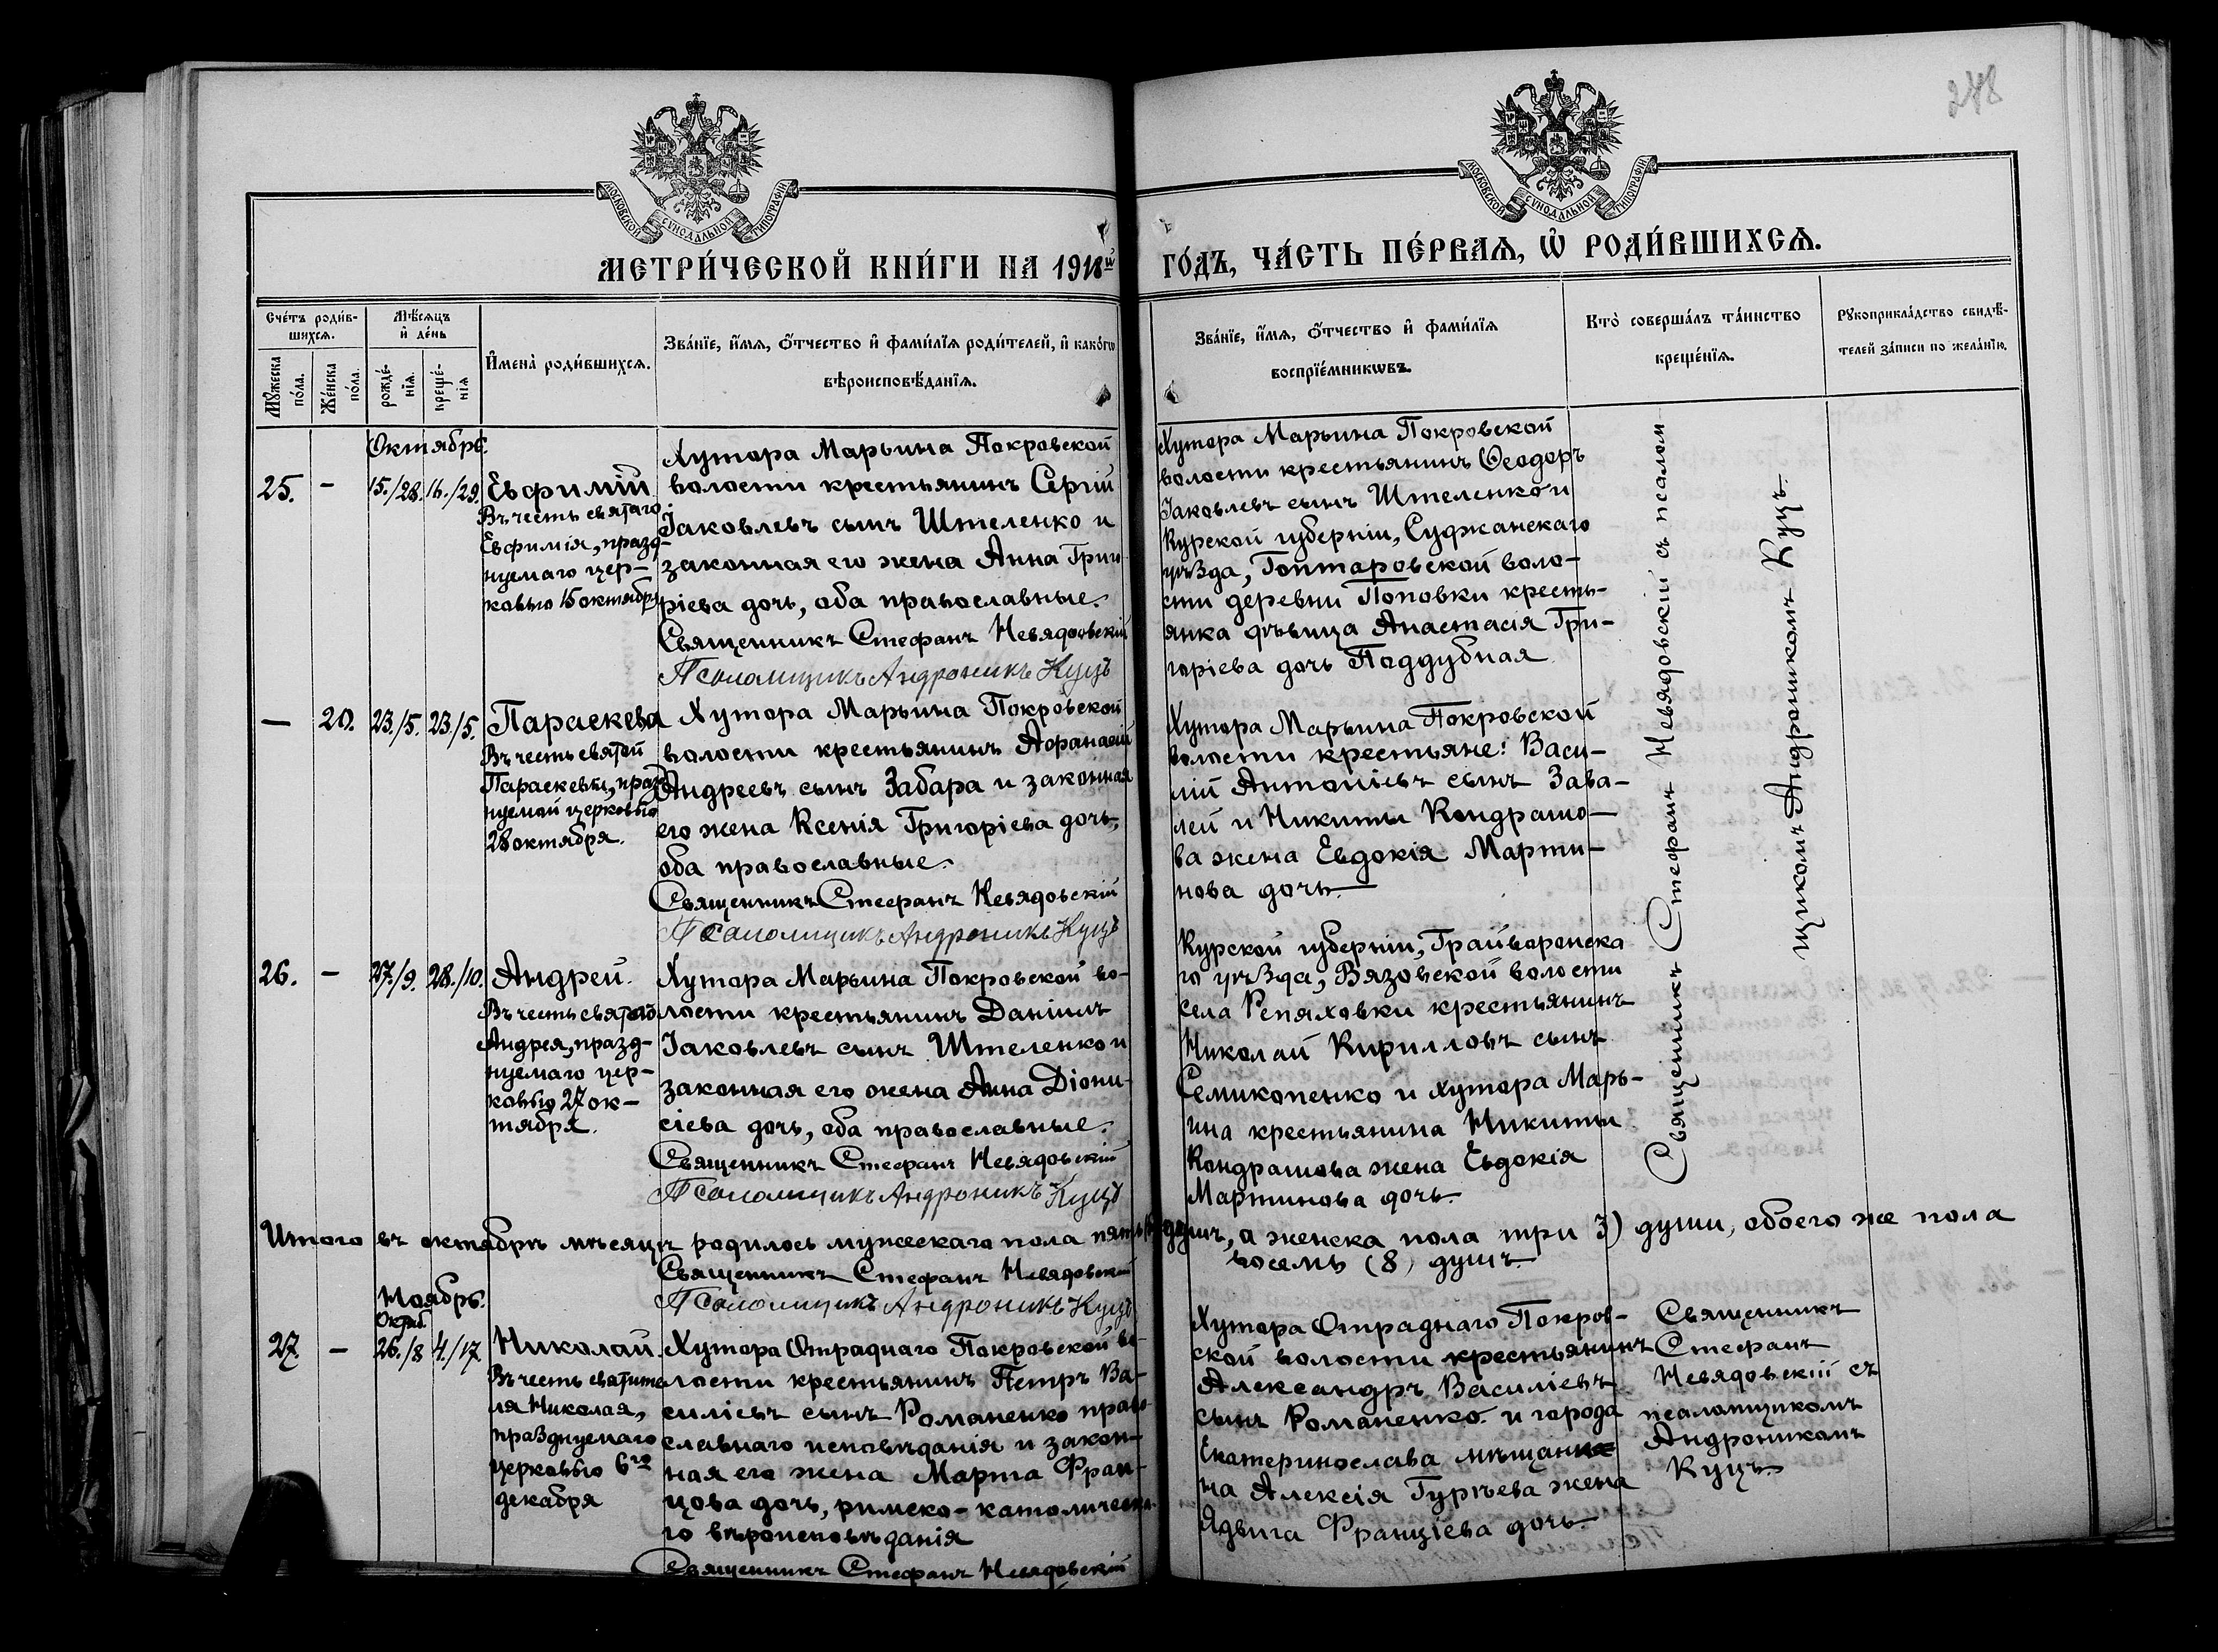 248
МОСКОВСКОЙ СѴНОДАЛЬНОЙ ТИПОГРАФІИ
МОСКОВСКОЙ СѴНОДАЛЬНОЙ ТИПОГРАФІИ
МЕТРИ́ЧЕСКОЙ КНИ́ГИ НА 1918й
ГО́ДЪ, ЧА́СТЬ ПЕ́РВАѦ, Ѽ РОДИ́ВШИХСѦ.
Сче́тъ роди́в-
шихсѧ.
Мѣ́сѧцъ
и҆ де́нь
Мꙋжеска
по́ла.
Же́нска
по́ла.
рожде́-
нїѧ.
креще́-
нїѧ
И҆мена̀ роди́вшихсѧ.
Зва́нїе, и҆́мѧ, ѻ҆́тчество и҆ фами́лїѧ роди́телей, и҆ како́гѡ
вѣроисповѣ́данїѧ.
Зва́нїе, и҆́мѧ, ѻ҆́тчество и҆ фами́лїѧ
воспрїе́мникѡвъ.
Кто̀ соверша́лъ та́инство
креще́нїѧ.
Рꙋкоприкла́дство свидѣ́-
телей за́писи по жела́нїю.
Октябрь.
25.
-
15./28.
16./29.
Евфимій
Въ честь святаго
Евфимія, празд-
нуемаго цер-
ковью 15 октября
Хутора Марьина Покровской
волости крестьянинъ Сергій
Іаковлевъ сынъ Штеленко и
законная его жена Анна Григо-
ріева дочь, оба православные.
Священникъ Стефанъ Невядовскій
Псаломщикъ Андроникъ Куцъ
Хутора Марьина Покровской
волости крестьянинъ Ѳеодоръ
Іаковлевъ сынъ Штеленко и
Курской губерніи, Суджанскаго
уѣзда, Гоптаровской воло-
сти деревни Поповки кресть-
янка дѣвица Анастасія Гри-
горіева дочь Поддубная
Священникъ Стефанъ Невядовскій съ псалом
щикомъ Андроникомъ Куцъ.
-
20.
23./5.
23./5.
Параскева
Въ честь святой
Параскевы, празд
нуемой церковью
28 октября.
Хутора Марьина Покровской
волости крестьянинъ Аѳанасій
Андреевъ сынъ Забара и законная
его жена Ксенія Григоріева дочь,
оба православные.
Священникъ Стефанъ Невядовскій
Псаломщикъ Андроникъ Куцъ
Хутора Марьина Покровской
волости крестьяне: Васи-
лій Антоніевъ сынъ Зава-
лей и Никиты Кондрашо-
ва жена Евдокія Марти-
нова дочь.
26.
-
27./9.
28./10.
Андрей.
Въ честь святого
Андрея, празд-
нуемаго цер-
ковью 27 ок-
тября.
Хутора Марьина Покровской во-
лости крестьянинъ Даніилъ
Іаковлевъ сынъ Штеленко и
законная его жена Анна Діони-
сіева дочь, оба православные.
Священникъ Стефанъ Невядовскій
Псаломщикъ Андроникъ Куцъ
Курской губерніи, Грайворонска
го уѣзда, Вязовской волости
села Репяховки крестьянинъ
Николай Кирилловъ сынъ
Семикопенко и хутора Марь-
ина крестьянина Никиты
Кондрашова жена Евдокія
Мартинова дочь.
Итого въ октябрѣ мѣсяцѣ родилось мужескаго пола пять душъ, а женска пола три 3) души, обоего же пола
восемь (8) душъ.
Священникъ Стефанъ Невядовскій
Псаломщикъ Андроникъ Куцъ
Ноябрь.
Октяб.
27
-
26./8
4./17
Николай.
Въ честь святите
ля Николая,
празднуемаго
церковью 6го
декабря
Хутора Отраднаго Покровской во-
лости крестьянинъ Петръ Ва-
силіевъ сынъ Романенко право-
славнаго исповѣданія и закон-
ная его жена Марта Фран-
цова дочь, римско-католическа-
го вѣроисповѣданія
Священникъ Стефанъ Невядовскій
Хутора Отраднаго Покров-
ской волости крестьянинъ
Александръ Василіевъ
сынъ Романенко и города
Екатеринослава мѣщани
на Алексія Гурѣева жена
Ядвига Францієва дочь.
Священникъ
Стефанъ
Невядовскій съ
псаломщикомъ
Андроникомъ
Куцъ.